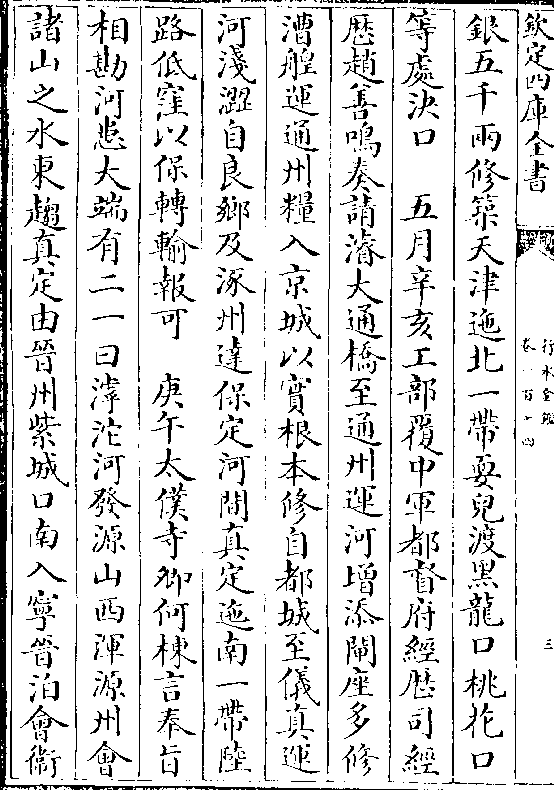 欽定四庫全書
行水金鑑
卷一百十四
三
銀五千兩修築天津迤北一帶耍兒渡黑龍口桃花口
等處決口　五月辛亥工部覆中軍都督府經歴司經
歴趙善鳴奏請濬大通橋至通州運河增添閘座多修
漕艘運通州糧入京城以實根本修自都城至儀真運
河淺澀自良鄉及涿州達保定河間真定迤南一帶陸
路低窪以保轉輸報可　庚午太僕寺卿何棟言奉旨
相勘河患大端有二一曰滹沱河發源山西渾源州會
諸山之水東趨真定由晉州紫城口南入寧晉泊會衛